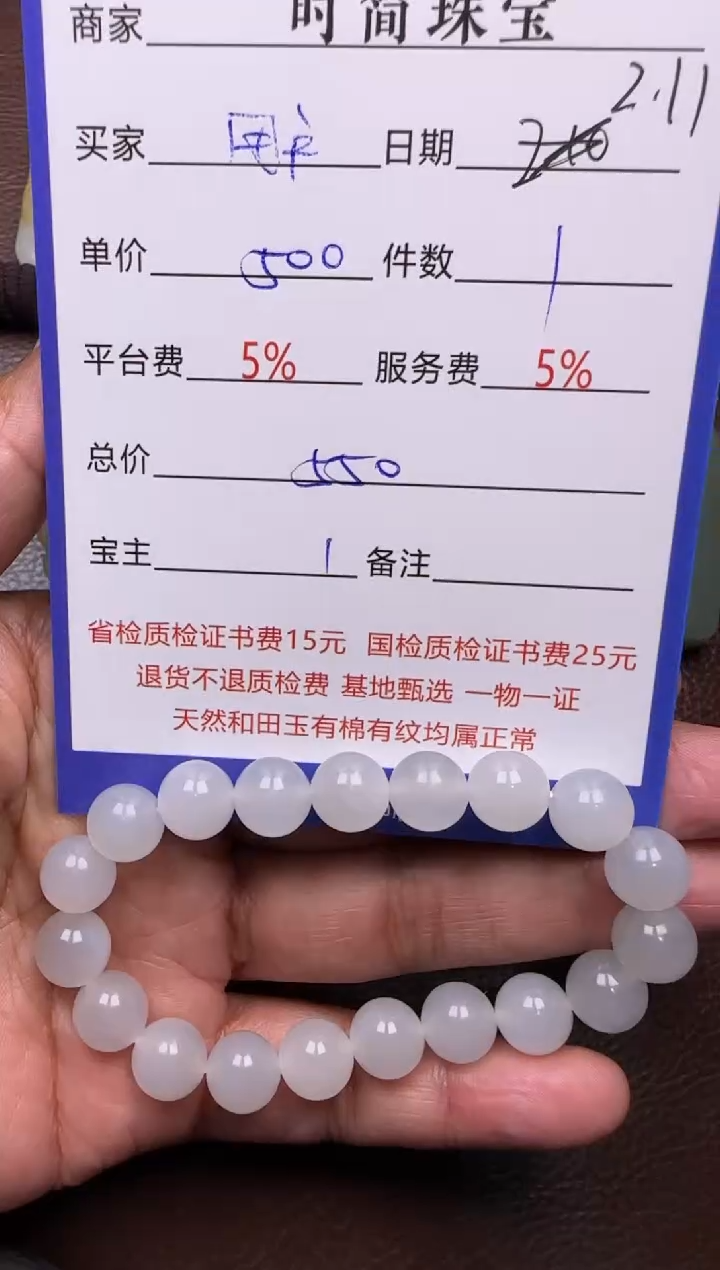 商家 时简珠宝
2.11
买家 用户 日期
单价 500 件数 1
平台费 5% 服务费 5%
总价 550
宝主 1 备注
省检质检证书费15元 国检质检证书费25元
退货不退质检费 基地甄选 一物一证
天然和田玉有棉有纹均属正常